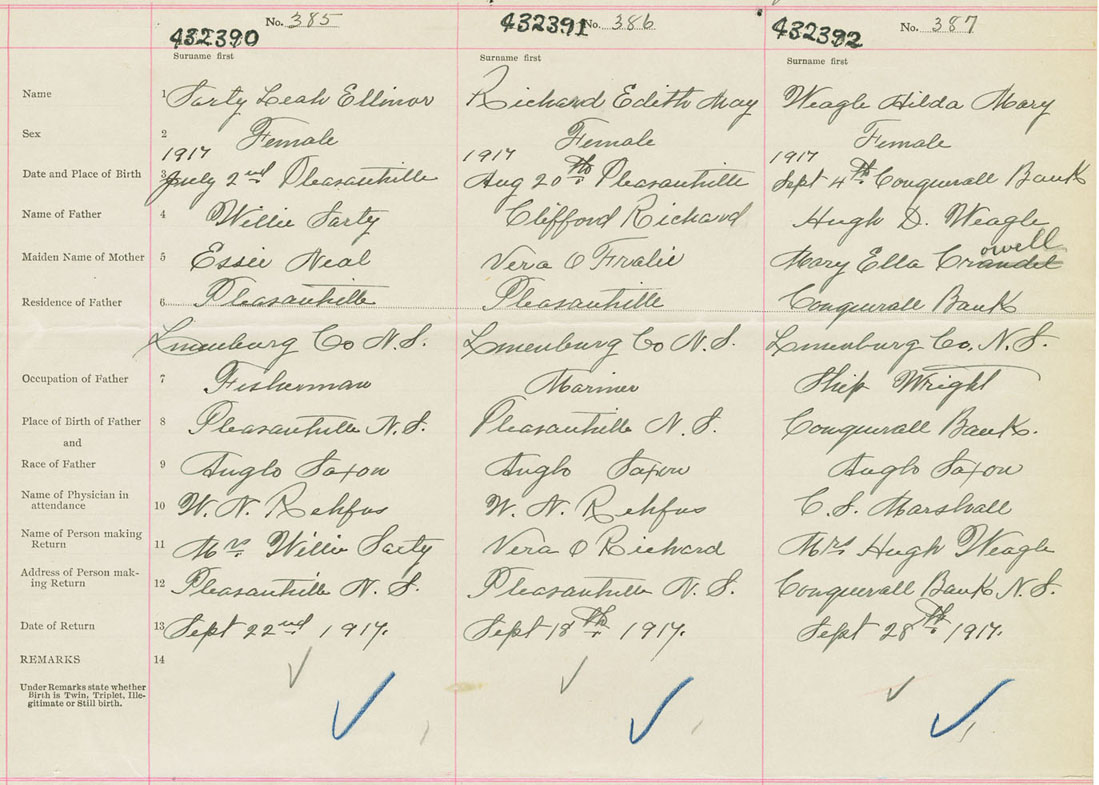 No. 385 No. 386 No. 387
432390 432391 432392
Surname first Surname first Surname first
Name 1 Sarty Leah Ellinor Richard Edith May Weagle Hilda Mary
Sex 2 Female Female Female
1917 1917 1917
Date and Place of Birth 3 July 2nd Pleasantville Aug 20th Pleasantville Sept 4th Conquerall Bank
Name of Father 4 Willie Sarty Clifford Richard Hugh D. Weagle
owell
Maiden Name of Mother 5 Essie Neal Vera O Fralic Mary Ella Crandel
Residence of Father 6 Pleasantville Pleasantville Conquerall Bank
Lunenburg Co N.S. Lunenburg Co N.S. Lunenburg Co, N.S.
Occupation of Father 7 Fisherman Mariner Ship Wright
Place of Birth of Father 8 Pleasantville N.S. Pleasantville N.S. Conquerall Bank.
and
Race of Father 9 Anglo Saxon Anglo Saxon Anglo Saxon
Name of Physician in
attendance 10 W. N. Rehfus W. N. Rehfus C. S. Marshall
Name of Person making
Return 11 Mrs Willie Sarty Vera O Richard Mrs Hugh Weagle
Address of Person mak-
ing Return 12 Pleasantville N.S. Pleasantville N.S. Conquerall Bank N.S.
Date of Return 13 Sept 22nd, 1917. Sept 18th, 1917. Sept 28th, 1917.
REMARKS 14
Under Remarks state whether
Birth is Twin, Triplet, Ille-
gitimate or Still birth.